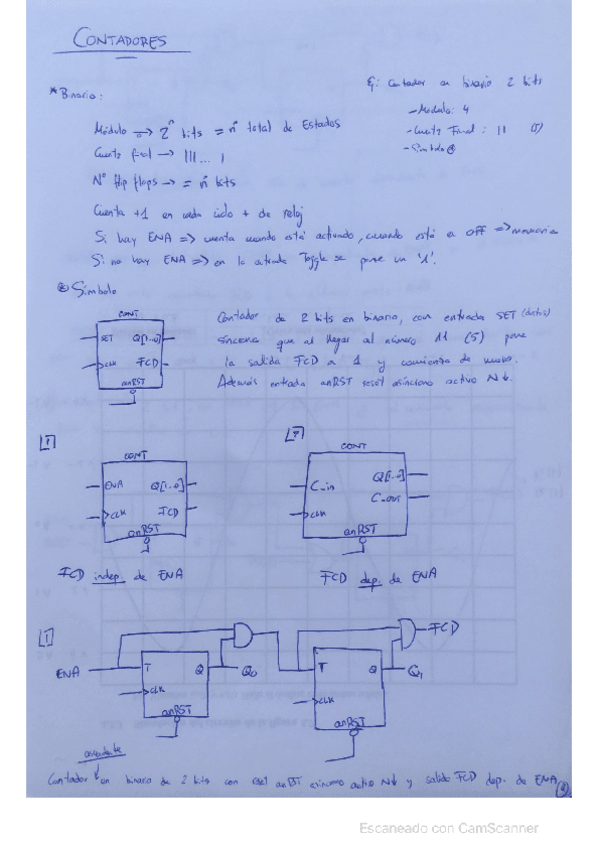 CONTADORES
* Binario:
Ej: Contador en binario 2 bits
- Módulo: 4
- Cuenta Final: 11
- Símbolo
Módulo → 2^n bits = nº total de Estados
Cuenta final → 111... 1
Nº flip flops → = nº bits
Cuenta +1 en cada ciclo + de reloj
Si hay ENA => cuenta cuando está activado, cuando está en OFF => memoria
Si no hay ENA => en la entrada Toggle se pone un '1'.
Símbolo
CONT
SET Q[1..0]
CLK FCD
anRST
Contador de 2 bits en binario, con entrada SET (datos)
síncrona que al llegar al número 11 (5) pone
la salida FCD a 1 y comienza de nuevo.
Además entrada anRST reset asíncrono activo N↓.
CONT
ENA Q[1..0]
CLK FCD
anRST
FCD indep. de ENA
CONT
C_in Q[1..0]
C_out
CLK
anRST
FCD dep. de ENA
ENA T Q Q0
CLK
anRST
T Q Q1
FCD
CLK
anRST
ascendente
Contador en binario de 2 bits con reset anRST asíncrono activo N↓ y salida FCD dep. de ENA
Escaneado con CamScanner